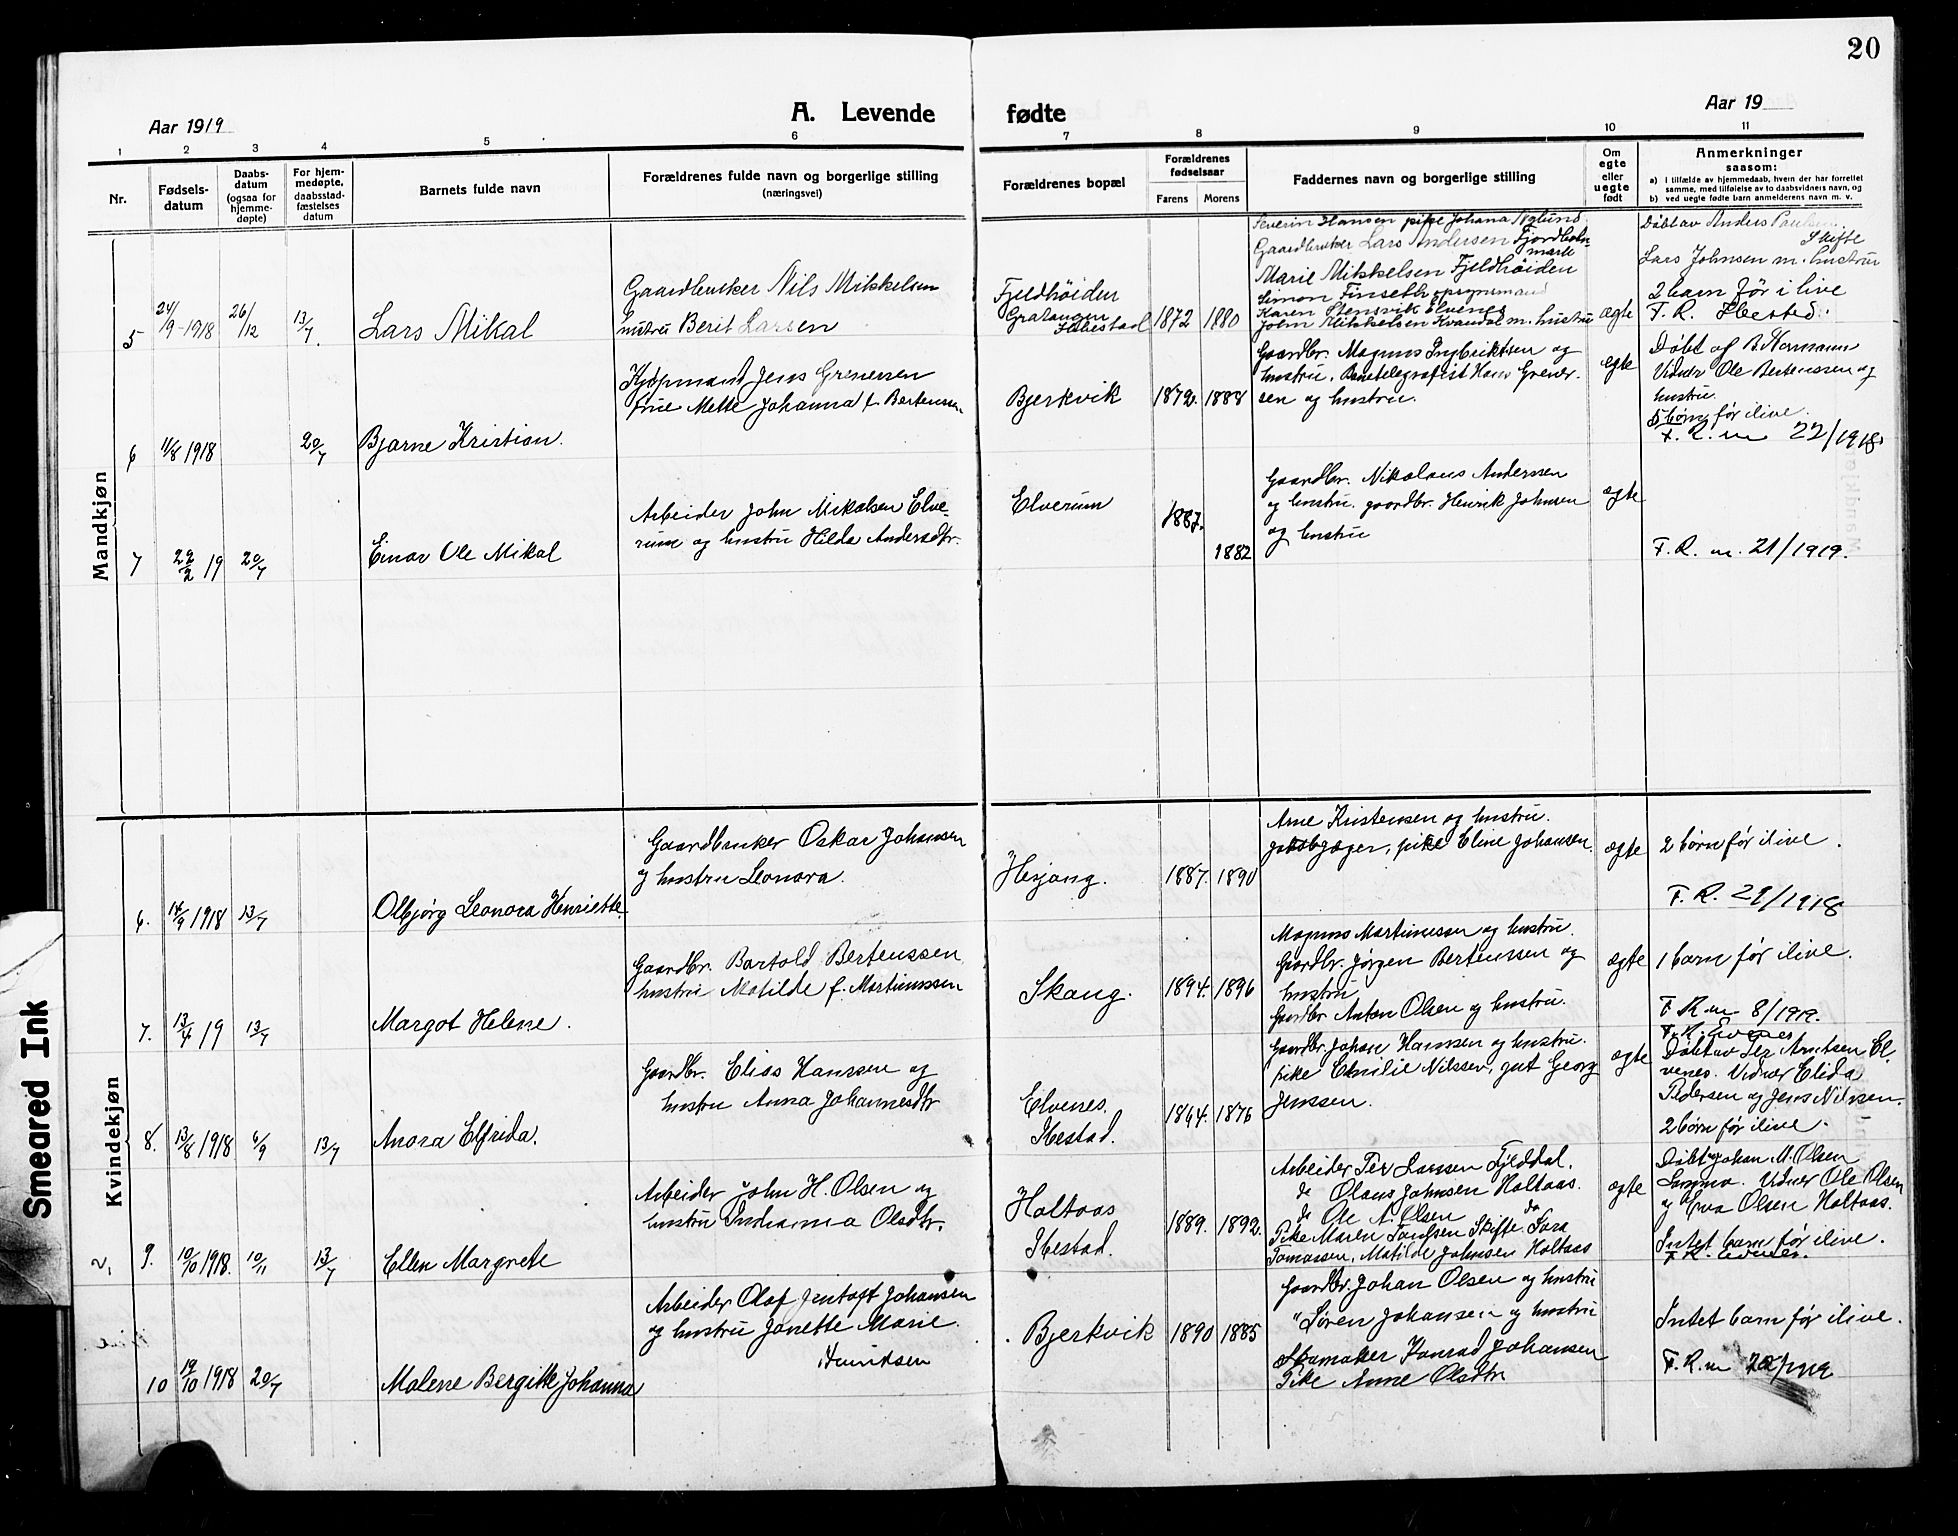 20
A. Levende fødte
Aar 1919
Aar 19
1 2 3 4 5 6 7 8 9 10 11
Nr.
Fødsels-
datum
Daabs-
datum
(ogsaa for
hjemme-
døpte)
For hjem-
medøpte,
daabsstad-
fæstelses
datum
Barnets fulde navn
Forældrenes fulde navn og borgerlige stilling
(næringsvei)
Forældrenes bopæl
Forældrenes
fødselsaar
Farens Morens
Faddernes navn og borgerlige stilling
Om
egte
eller
uegte
født
Anmerkninger
saasom:
a) i tilfælde av hjemmedaab, hvem der har forrettet
samme, med tilføielse av to daabsvidners navn, og
b) ved uegte fødte barn anmelderens navn m. v.
Mandkjøn
5
24/9-1918
26/12
13/7.
Lars Mikal
Gaardbruker Nils Mikkelsen
hustru Berit Larsen
Fjeldhöiden
Gratangen
Ibbestad
1872 1880
Severin Hansen pike Johana Nylund.
Gaardbruker Lars Andersen Fjordbotn-
marke
Marie Mikkelsen Fjeldhöiden
Simon Finseth opsynsmand
Karen Stensvik Elvenes
John Mikkelsen Kvandal m. hustru
egte
Döbt av Anders Paulsen
Skifte
Lars Johnsen m. hustru
2 barn för i live
F. R. Ibested.
6
11/8 1918
20/7
Bjarne Kristian.
Kjøpmand Jens Grenersen
frue Mette Johanna f. Bertenssen
Bjerkvik
1872. 1888
Gaardbr. Magnus Ingbriktsen og
hustru. Banetelegrafist Hans Grener-
sen og hustru.
egte
Döbt af B. Normann
Vidner Ole Bertenssen og
hustru.
5 börn før ilive.
F. R. nr 22/1918.
7
22/2 19
20/7
Einar Ole Mikal
Arbeider John Mikalsen Elve-
rum og hustru Hilda Andersdtr.
Elverum
1887.
1882
Gaardbr. Nikolaus Anderssen
og hustru. gaardbr. Henrik Johnsen
og hustru
egte
F. R. nr. 21/1919.
Kvindekjøn
6.
14/9 1918
13/7
Olbjörg Leonora Henriette
Gaardbruker Oskar Johansen
og hustru Leonora.
Hesjang.
1887. 1890
Arne Kristensen og hustru.
pike Eline Johansen.
egte
2 börn før ilive.
F. R. 29/1918
7.
13/4 19
13/7
Margot Helene.
Gaardbr. Bartold Bertenssen
hustru Matilde f. Martinussen
Skang.
1894. 1896
Magnus Martinussen og hustru.
Gaardbr. Jørgen Bertenssen og
hustru
Gaardbr Anton Olsen og hustru.
egte
1 barn før ilive.
F. R nr 8/1919.
8.
13/8 1918
6/9
13/7
Anora Elfrida.
Gaardbr. Elias Hanssen og
hustru Anna Johannesdtr
Elvenes.
Ibestad.
1864. 1876
Gaardbr. Johan Hanssen og hustru.
pike Emilie Nilssen, gut Georg
Jenssen.
egte
F. R. Evenes
Døbt av Per Arntsen El-
venes. Vidner Elida
Pedersen og Jens Nilssen.
2 börn før ilive.
2,
9.
10/10 1918.
10/11
13/7
Ellen Margrete
Arbeider John H. Olsen og
hustru Indianna Olsdtr.
Holtaas
Ibestad.
1889. 1892.
Arbeider Per Larssen Fjelddal.
do Olaus Johnsen Holtaas.
do Ole A. Olsen do
Pike Maren Paulsen Skifte. Sara
Tomassen, Matilde Johnsen Holtaas
egte
Døbt Johan M. Olsen
Vidner Ole Olsen
og Eva Olsen Holtaas.
Intet barn før ilive.
F. R. Evenes.
10
19/10 1918
20/7
Malene Bergitte Johanna
Arbeider Olaf Jentoft Johansen
og hustru Janette Marie.
Henriksen
Bjerkvik
1890 1885
Gaardbr Johan Olsen og hustru
" Søren Johansen og hustru
Skomaker Konrad Johansen
Pike Anne Olsdtr
Intet barn før ilive.
F. R. nr 22/1919
Smeared Ink